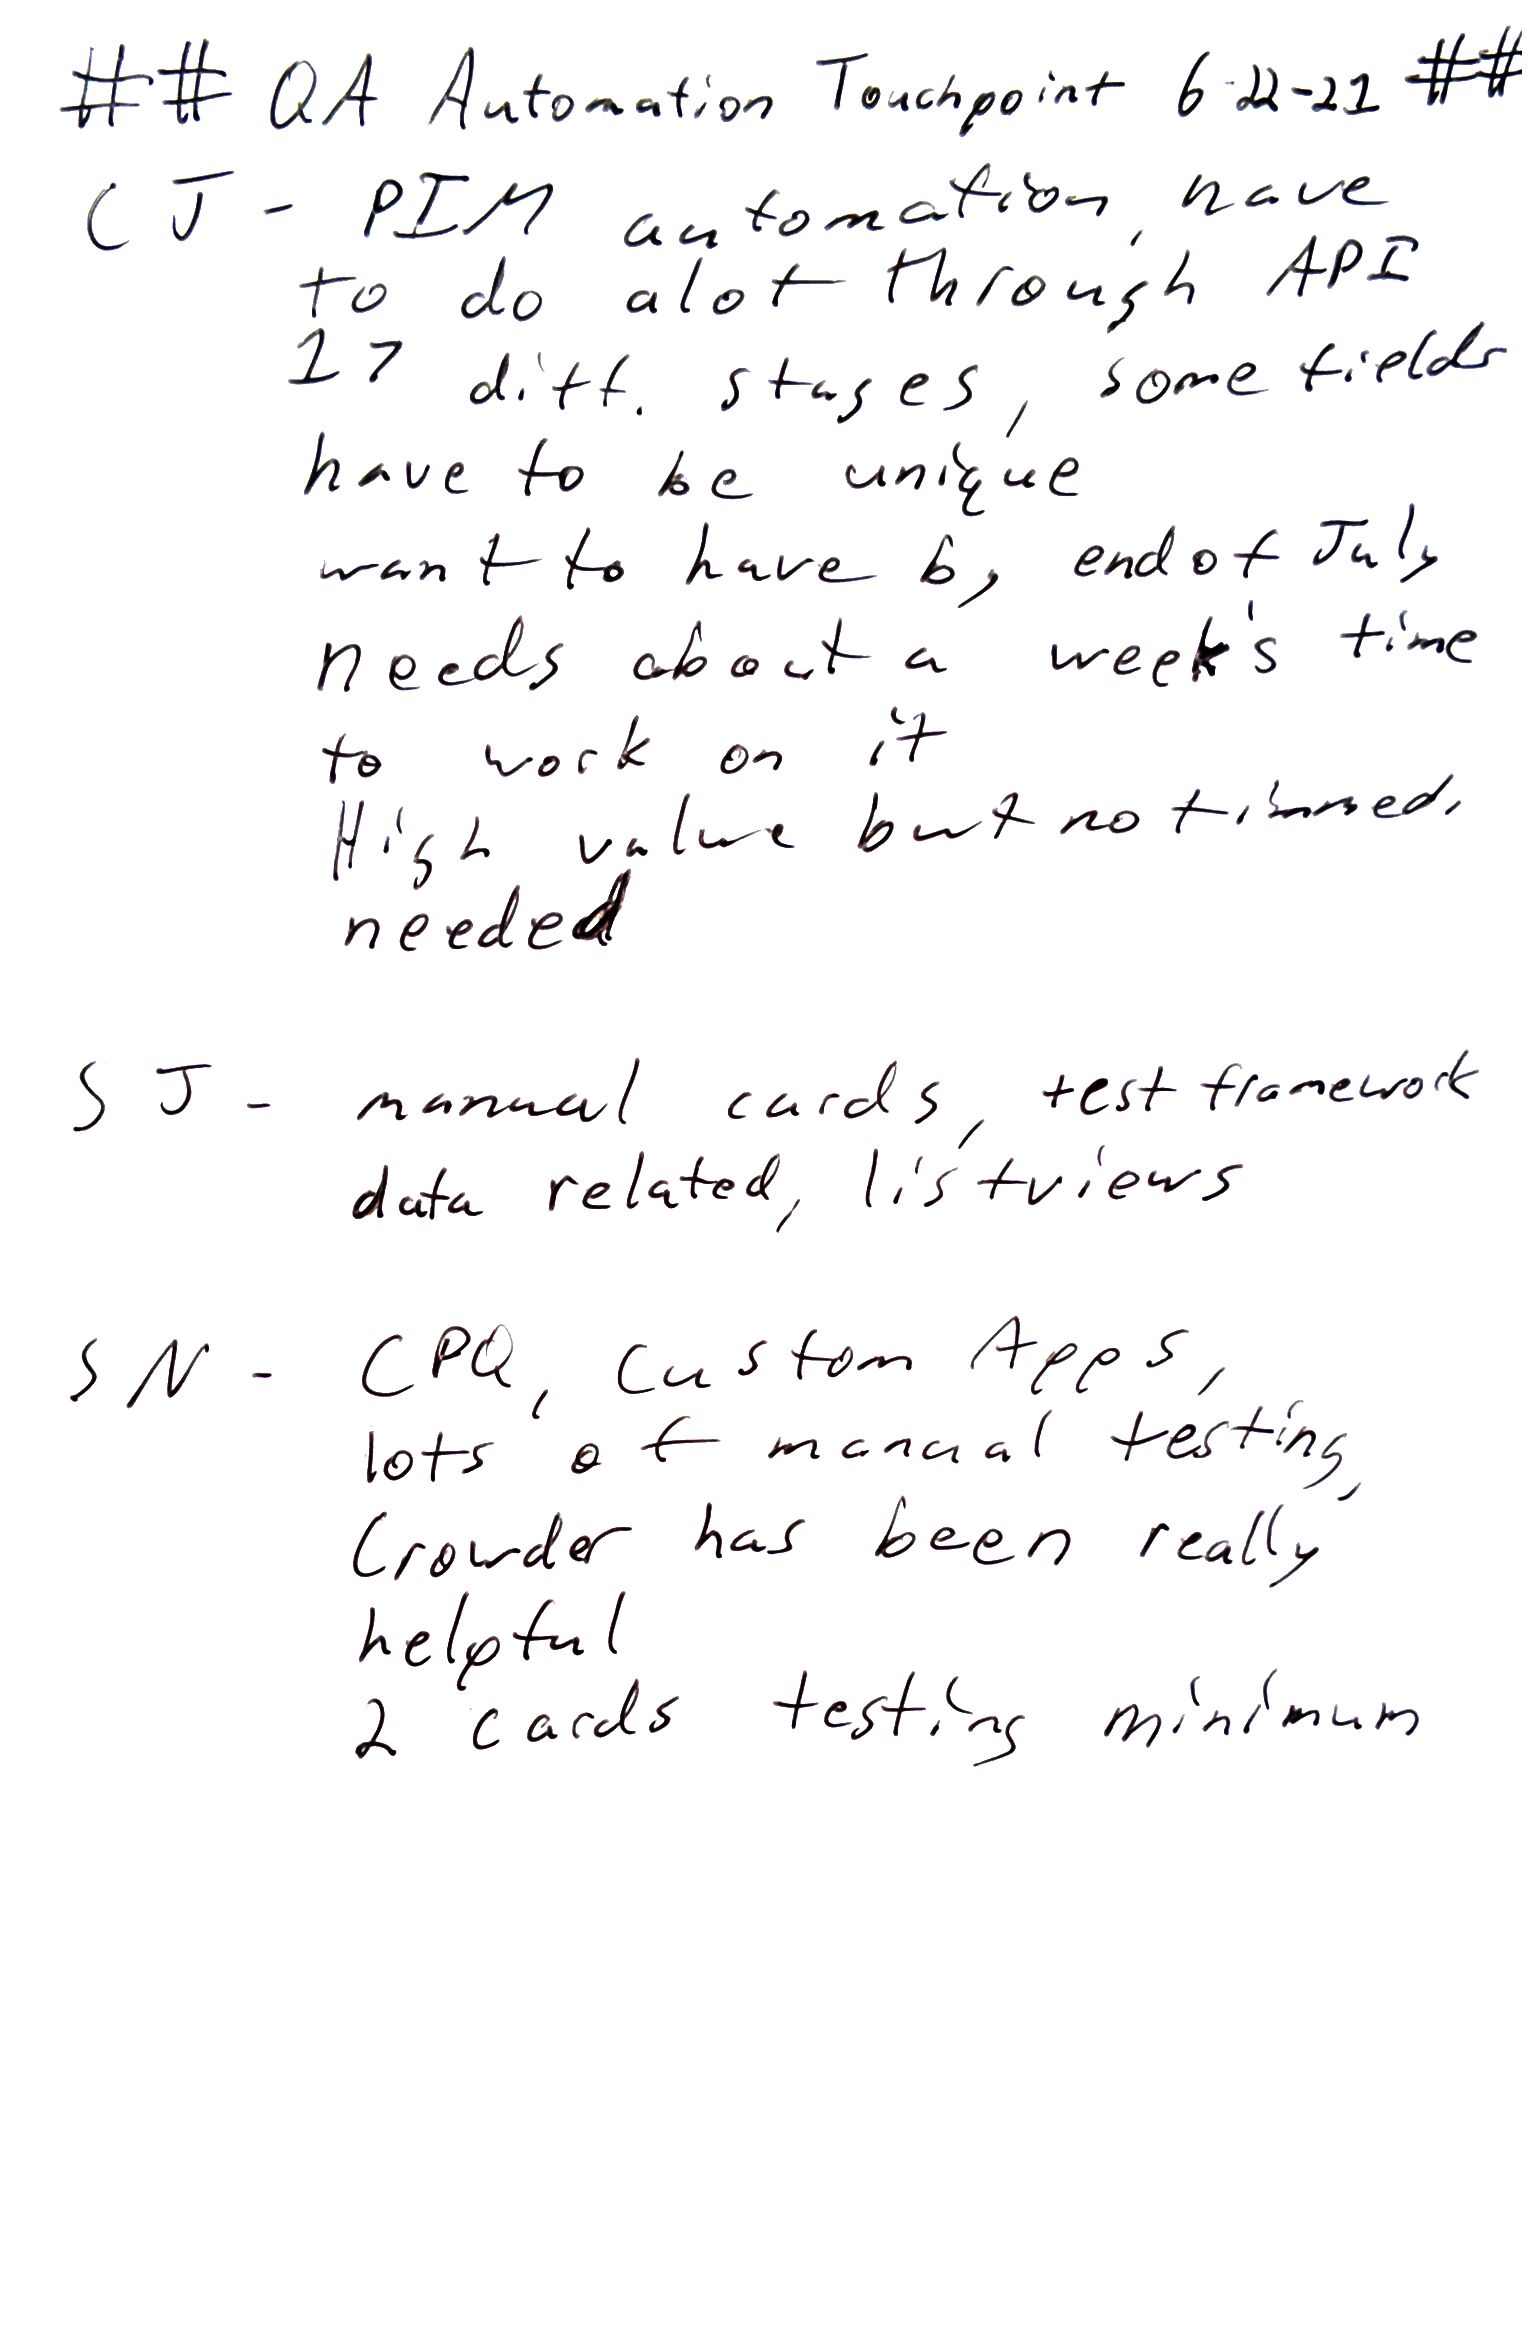 ## QA Automation Touchpoint 6-22-21 ##
CJ - PIM automation, have
to do alot through API
17 diff. stages, some fields
have to be unique
want to have by end of July
needs about a week's time
to work on it
High value but not immed.
needed
SJ - manual cards, test framework
data related, listviews
SN - CPQ, Custom Apps,
lots of manual testing,
Crowder has been really
helpful
2 cards testing minimum